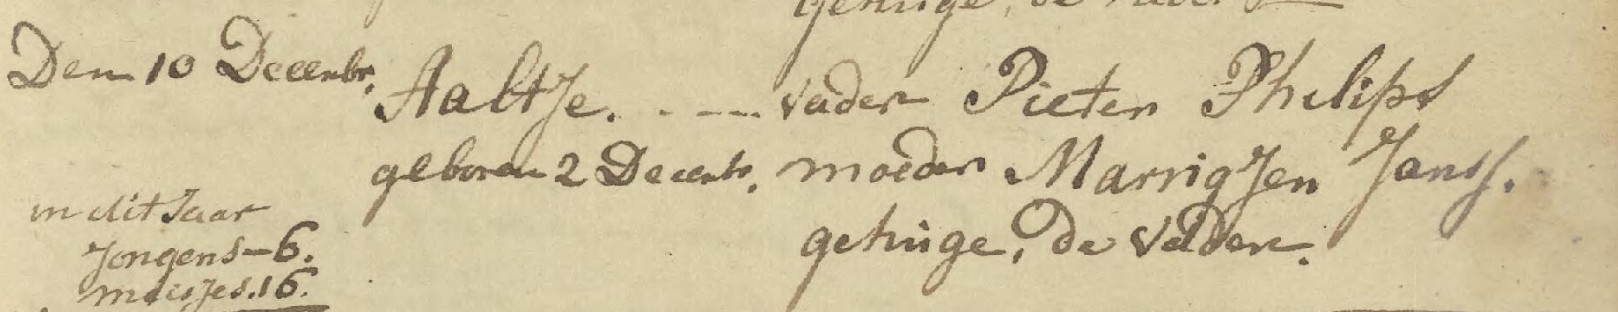 getuige, de vader
Den 10 Decembr. Aaltje. - -- vader Pieter Philips
geboren 2 Decembr. moeder Marrigjen Jansz.
in dit Jaar
getuige, de Vader.
Jongens-6.
meisjes.16.